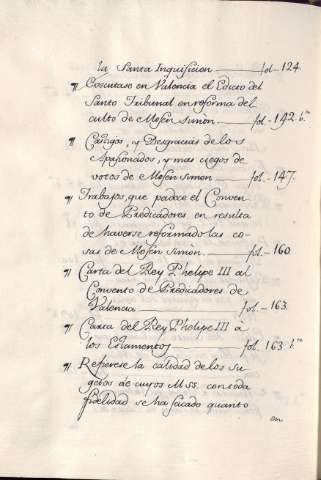 la Santa Inquisicion fol. 124.
¶ Executase en Valencia el Edicto del
Santo Tribunal en reforma del
culto de Mosen Simon. fol. 142 b.
¶ Castigos, y Desgracias de los
Apasionados, y mas ciegos de
votos de Mosen Simon fol. 147.
¶ Trabajos, que padece el Conven
to de Predicadores en resulta
de haverse reformado las co
sas de Mosen Simon. fol. 160
¶ Carta del Rey Phelipe III al
Convento de Predicadores de
Valencia fol. 163.
¶ Carta del Rey Phelipe III a
los Estamentos fol. 163 b.
¶ Refierese la calidad de los Su
getos de cuyos M.SS. con toda
fidelidad se ha sacado quanto
en